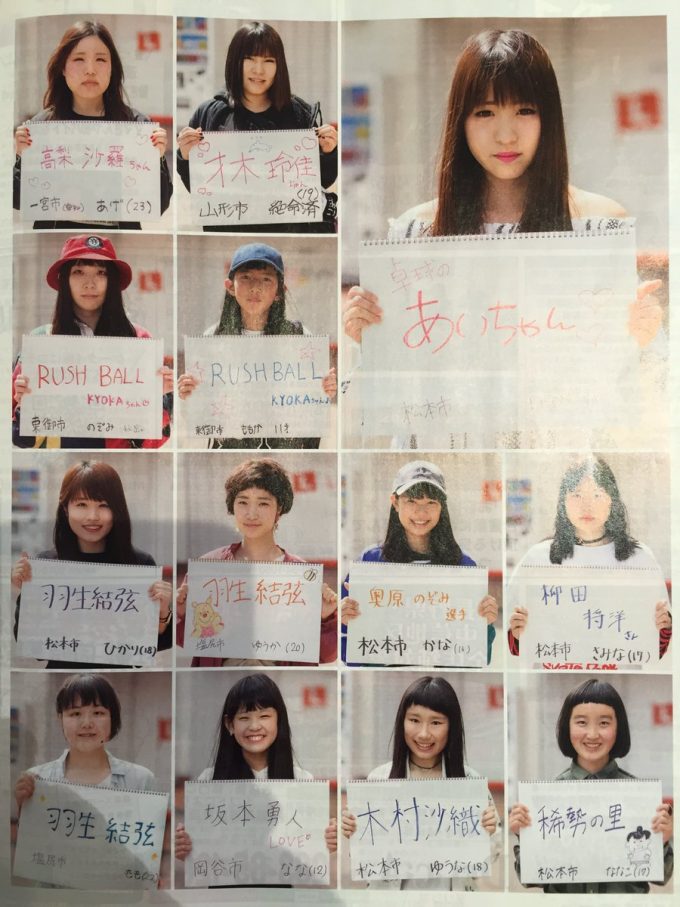 高梨 沙羅ちゃん
一宮市(愛知) あげ(23)
才木 玲佳ちゃん
(19)
山形市 絶命済
卓球の
あいちゃん
松本市
RUSH BALL
KYOKAちゃん
東御市 のぞみ
RUSH BALL
KYOKAちゃん
東御市 ももか
羽生結弦
松本市 ひかり(18)
羽生結弦
塩尻市 ゆうか(20)
奥原 のぞみ
選手
松本市 かな
柳田
将洋
さん
松本市 さみな(17)
羽生 結弦
塩尻市 もも
坂本勇人
LOVE
岡谷市 なな(12)
木村沙織
松本市 ゆうな(18)
稀勢の里
松本市 ななこ